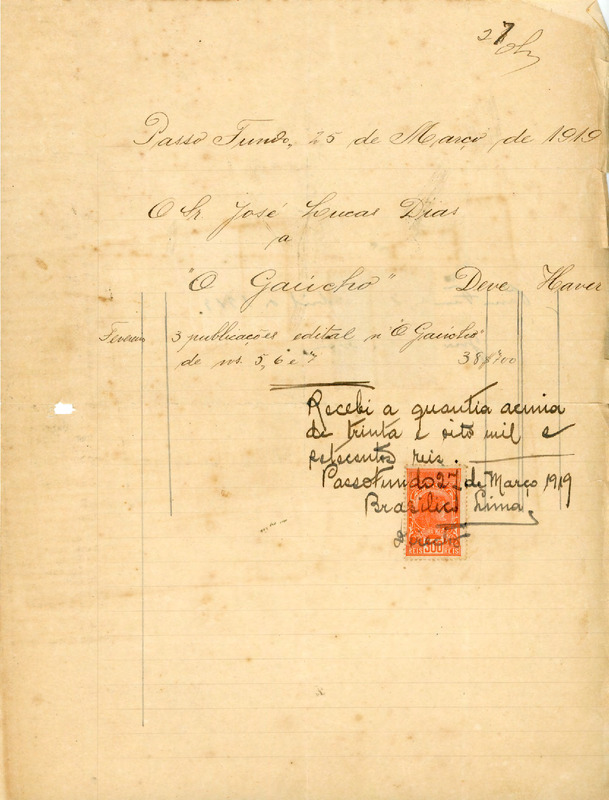 27
Passo Fundo, 25 de Março de 1919
O Sr José Lucas Dias
a
"O Gaúcho" Deve Haver
Fevereiro 3 publicações edital n "O Gaúcho"
de ns. 5, 6 e 7 38$700
Recebi a quantia acima
de trinta e oito mil e
setecentos reis.
Passo Fundo 27 de Março 1919
Brasilico Lima
REIS 300 REIS